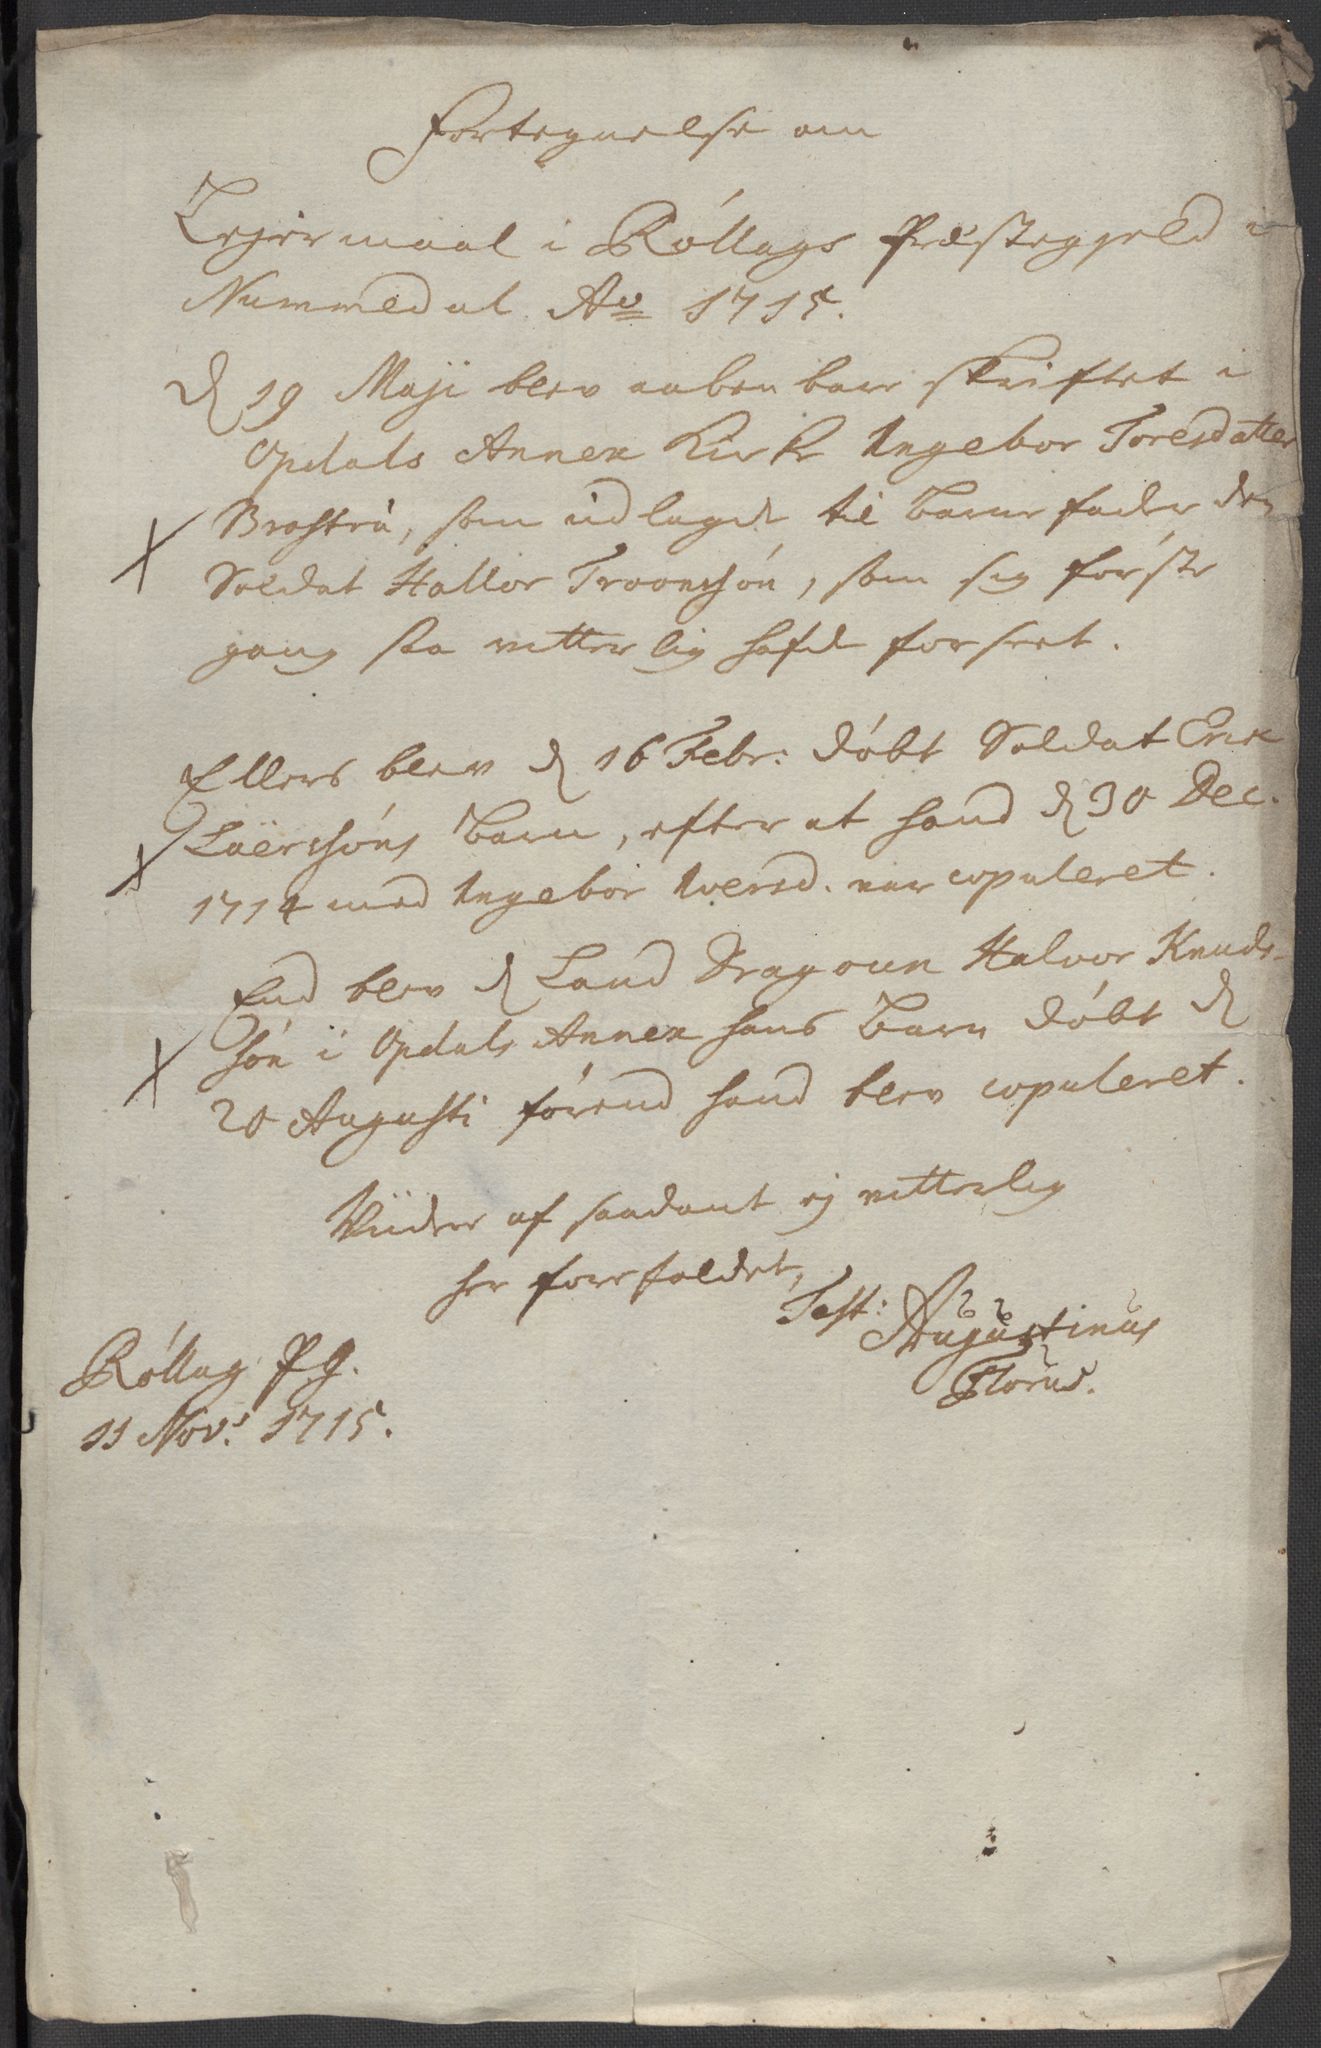 Fortegnelse om
Lejermaal i Róllags Præstegield i
Nummedal Ao 1715.
d 19 Maji blev aabenbare skriftet i
Opdals Annex Kirke Ingebor Toresdatter
Brostrú, som udlagde til Barne fader den
Soldat Hallvor Troonsøn, som sig første
gang saa vitterlig hafde forseet.
Ellers blev d 16 Febr: døbt Soldat Erik
Laersøns Barn, efter at hand d 30 Dec.
1714 med Ingebor Iversd. var copuleret.
End blev d Land Dragoun Halvor Knuds-
søn i Opdals Annex hans Barn døbt d
20 Augusti førend hand blev copuleret.
Viidere af saadant ej vitterlig
her forefaldet,
Test: Augustinus
Florus.
Róllag PG.
11 Nov: 1715.